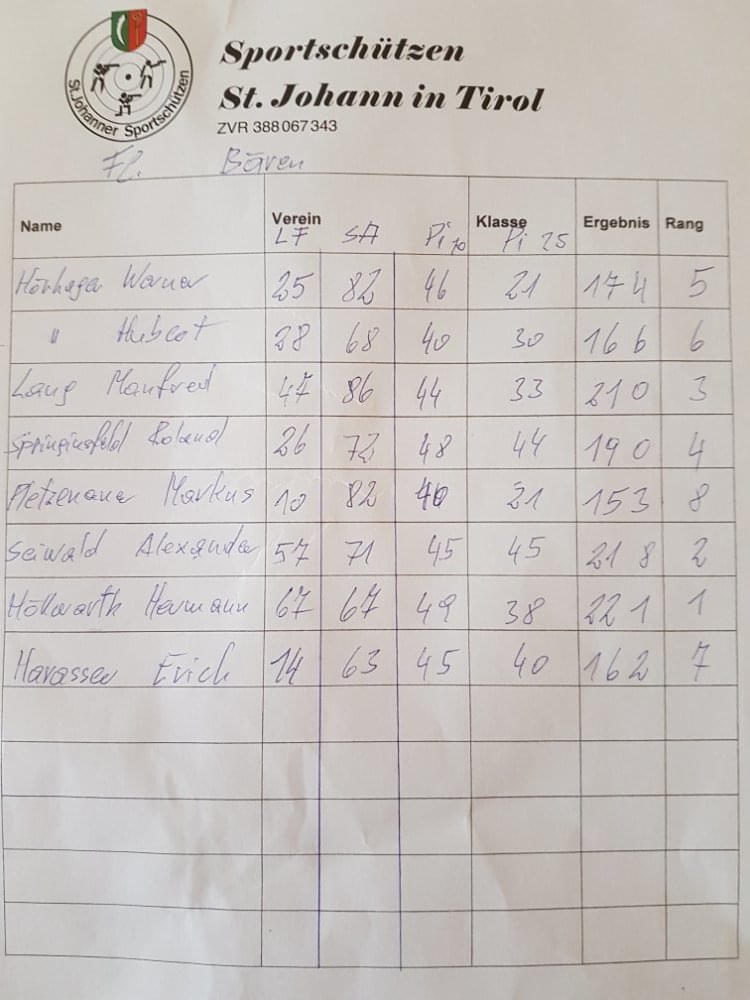 St. Johanner Sportschützen
Sportschützen
St. Johann in Tirol
ZVR 388067343
Fl. Bären
Name Verein Klasse Ergebnis Rang
LF SA Pi 10 Pi 25
Hörhager Werner 25 82 46 21 174 5
" Hubert 28 68 40 30 166 6
Lang Manfred 47 86 44 33 210 3
Springinsfeld Roland 26 72 48 44 190 4
Pletzenauer Markus 10 82 40 21 153 8
Seiwald Alexander 57 71 45 45 218 2
Höllwarth Hermann 67 67 49 38 221 1
Harasser Erich 14 63 45 40 162 7